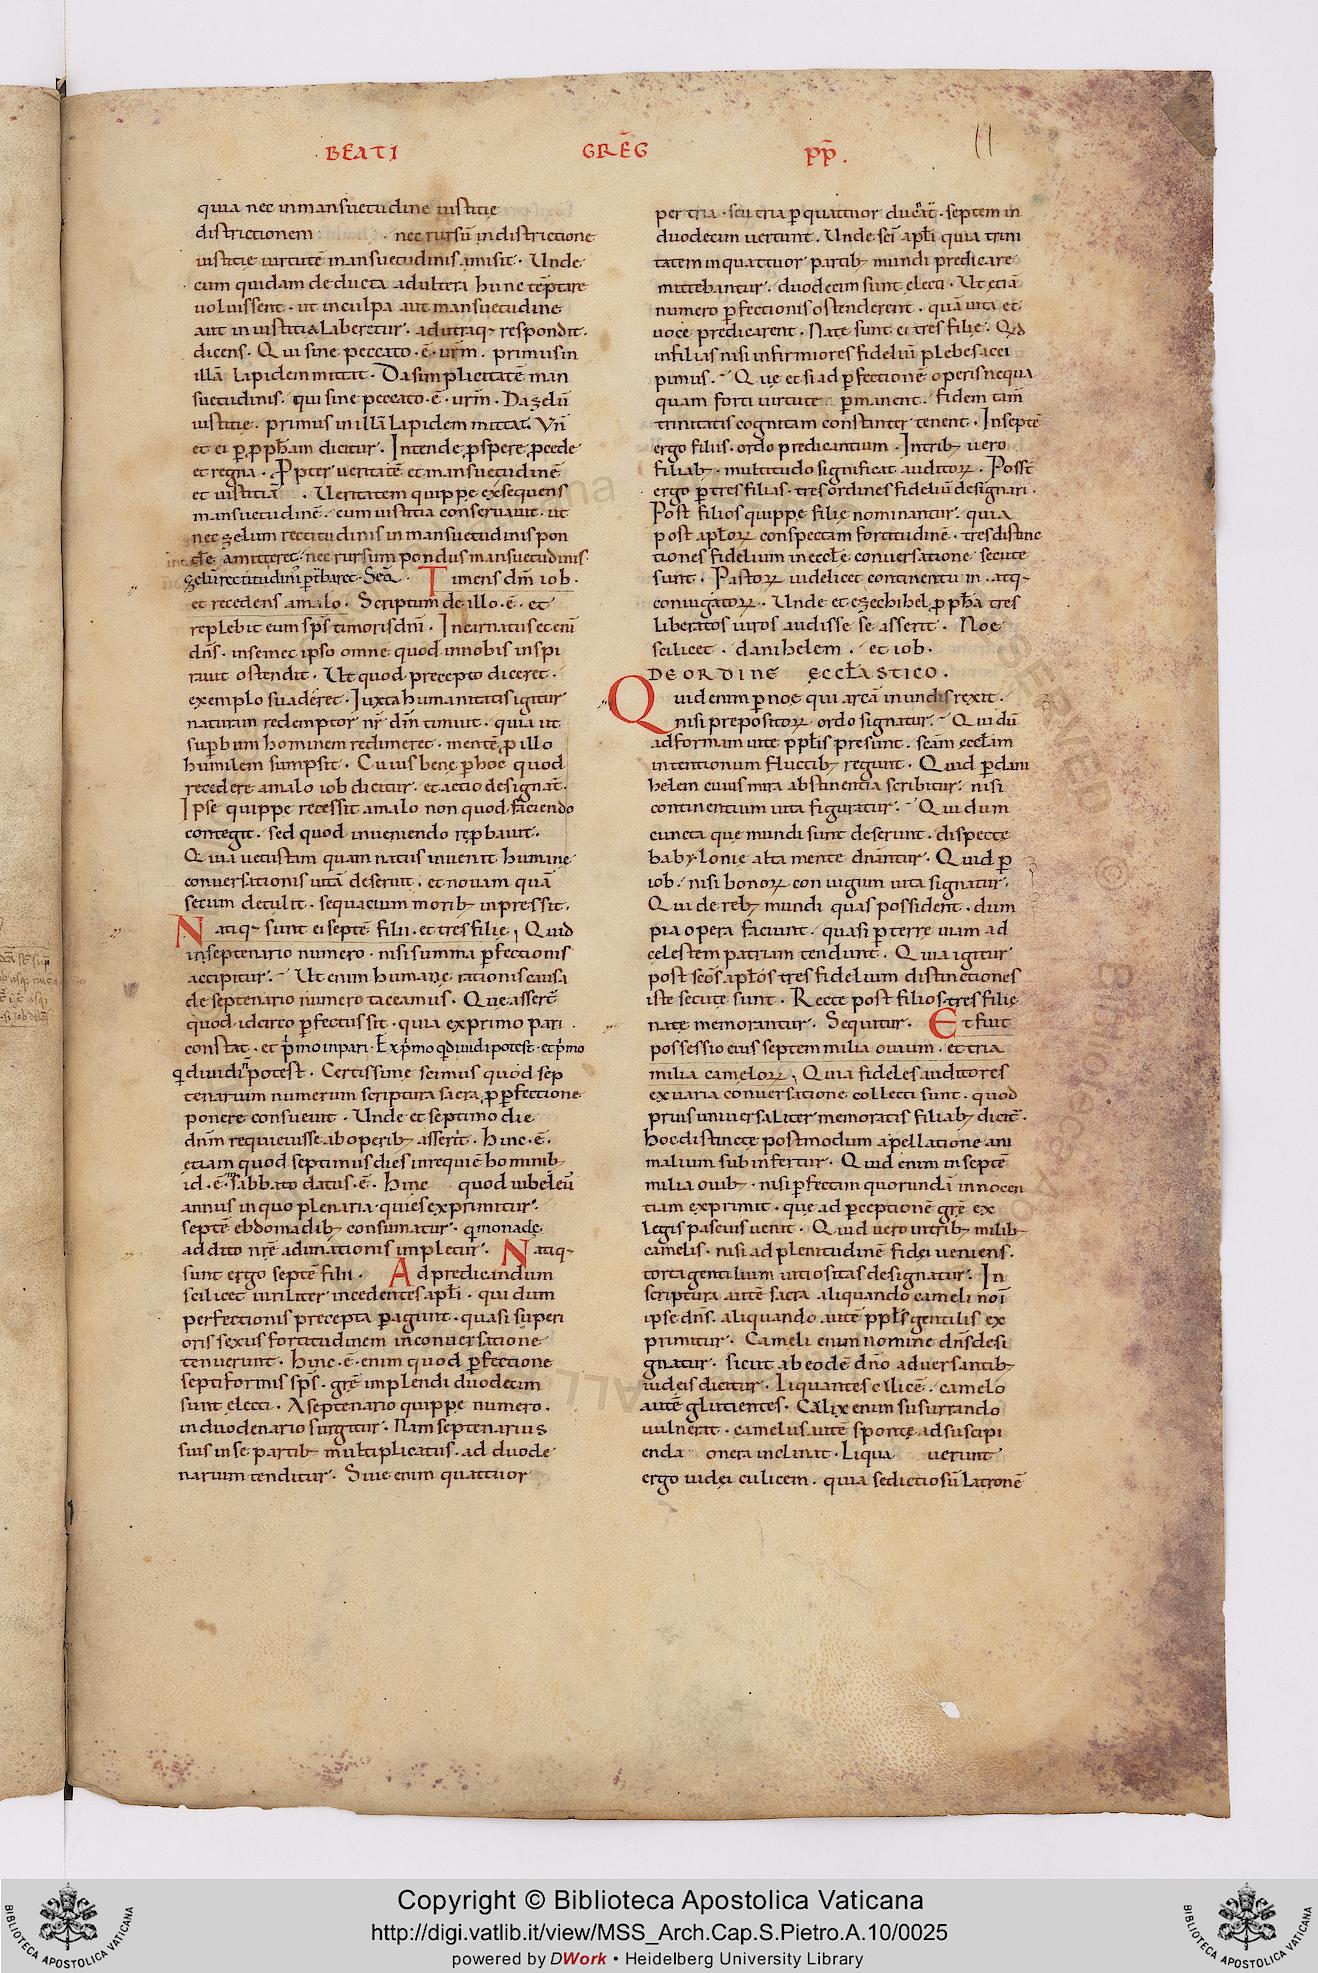 BEATI GRĒG PP̄.
11
quia nec in mansuetudine iustitie
districtionem . nec rursū in districtione
iustitie uirtutē mansuetudinis amisit. Unde
cum quidam deducta adultera hunc tēptare
uoluissent. ut in culpa aut mansuetudine
aut in iustitia laberetur. ad utraq; respondit.
dicens. Qui sine peccato .ē. ur̄m. primus in
illā lapidem mittat. Da simplicitatē man
suetudinis. qui sine peccato .ē. ur̄m. Da zelū
iustitie. primus in illā lapidem mittat. Vn̄
et ei ꝑ ꝓph̄am dicitur. Intende ꝓspere ꝓcede
et regna. Ꝓpter ueritatē et mansuetudinē
et iustitiā. Ueritatem quippe exsequens
mansuetudinē. cum iustitia conseruauit. ut
nec zelum rectitudinis in mansuetudinis pon
dere amitteret. nec rursum pondus mansuetudinis
zelū rectitudinis ꝑt̄baret. Seq̄. Timens dm̄ iob.
et recedens a malo. Scriptum de illo .ē. et
replebit eum sp̄s timoris dn̄i. Incarnatus eteni
dn̄s. in semet ipso omne quod in nobis inspi
rauit ostendit. Ut quod precepto diceret.
exemplo suaderet. Iuxta humanitatis igitur
naturam redemptor nr̄ dm̄ timuit. quia ut
suꝑbum hominem redimeret. mentē ꝓ illo
humilem sumpsit. Cuius bene ꝑ hoc quod
recedere a malo iob dicitur. et actio designat̄.
Ipse quippe recessit a malo non quod faciendo
contegit. sed quod inueniendo reꝓbauit.
Quia uetustam quam natus inuenit humane
conuersationis uitā deseruit. et nouam quā
secum detulit. sequacium morib; inpressit.
Natiq; sunt ei septē filii. et tres filie, Quid
in septenario numero. nisi summa ꝑfectionis
accipitur. Ut enim humane rationis causa
de septenario numero taceamus. Que asserit
quod idcirco ꝑfectus sit. quia ex primo pari.
constat. et p̄mo inpari. Ex p̄mo qd̄ diuidi potest. et p̄mo
qd̄ diuidi n̄ potest. Certissime scimus quod sep
tenarium numerum scriptura sacra ꝓ ꝑfectione
ponere consueuit. Unde et septimo die
dn̄m requieuisse ab operib; asserit. Hinc .ē.
etiam quod septimus dies in requiē hominib;
id .ē. in sabbato datus .ē. Hinc quod iubeleū
annus in quo plenaria quies exprimitur.
septē ebdomadib; consumatur. q̄ monade
addito nrē adunationis impletur. Natiq;
sunt ergo septē filii. Ad predicandum
scilicet uiriliter incedentes apl̄i. qui dum
perfectionis precepta ꝑagunt. quasi superi
oris sexus fortitudinem in conuersatione
tenuerunt. Hinc .ē. enim quod ꝑfectione
septiformis sp̄s. grē implendi duodecim
sunt electi. A septenario quippe numero.
in duodenario surgitur. Nam septenarius
suis in se partib; multiplicatus. ad duode
narium tenditur. Siue enim quattuor
per tria. seu tria ꝑ quattuor ducāt̄. septem in
duodecim uertunt. Unde sc̄i apl̄i quia trini
tatem in quattuor partib; mundi predicare
mittebantur. duodecim sunt electi. Ut etiā
numero ꝑfectionis ostenderent. quā uita et
uoce predicarent. Nate sunt ei tres filie. Qd̄
in filias nisi infirmiores fideliū plebes acci
pimus. Que etsi ad ꝑfectionē operis nequa
quam forti uirtute ꝑmanent. fidem tam̄
trinitatis cognitam constanter tenent. In septē
ergo filiis. ordo predicantium. In trib; uero
filiab;. multitudo significat auditoꝝ. Possē
ergo ꝑ tres filias. tres ordines fideliū designari.
Post filios quippe filie nominantur. quia
post apl̄oꝝ conspectam fortitudinē. tres distinc
tiones fidelium in eccl̄e conuersatione secute
sunt. Pastoꝝ uidelicet continentium. atq;
coniugatoꝝ. Unde et ezechihel ꝓpha tres
liberatos uiros audisse se asserit. Noe
scilicet. danihelem. et iob.
DE ORDINE ECCL̄ASTICO.
Quid enim ꝑ noe qui arcā in undis rexit.
nisi prepositoꝝ ordo signatur. Qui dū
ad formam uite ppl̄is presunt. sc̄am eccl̄am
in tentionum fluctib; regunt. Quid ꝑ dani
helem cuius mira abstinentia scribitur. nisi
continentium uita figuratur. Qui dum
cuncta que mundi sunt deserunt. dispecte
babylonie alta mente dn̄antur. Quid ꝑ
iob. nisi bonoꝝ coniugum uita signatur.
Qui de reb; mundi quas possident. dum
pia opera faciunt. quasi ꝑ terre uiam ad
celestem patriam tendunt. Quia igitur
post sc̄os apl̄os tres fidelium distinctiones
iste secute sunt. Recte post filios tres filie
nate memorantur. Sequitur. Et fuit
possessio eius septem milia ouium. et tria
milia cameloꝝ, Quia fideles auditores
ex uaria conuersatione collecti sunt. quod
prius uniuersaliter memoratis filiab; dicit̄.
hoc distincte postmodum apellatione ani
malium subinfertur. Quid enim in septē
milia ouib;. nisi ꝑfectam quorundā innocen
tiam exprimit. que ad ꝑceptionē grē ex
legis pascuis uenit. Quid uero in trib; milib;
camelis. nisi ad plenitudinē fidei ueniens.
torta gentilium uitiositas designatur. In
scriptura autē sacra aliquando cameli noī
ipse dn̄s. aliquando autē ppl̄s gentilis ex
primitur. Cameli enim nomine dn̄s desi
gnatur. sicut ab eodē dn̄o aduersantib;
iudeis dicitur. Liquantes culicē. camelo
autē glutientes. Calix enim susurrando
uulnerat. camelus autē sponte ad suscipi
enda onera inclinat. Liqua uerunt
ergo iudei culicem. quia sedictiosū latronē
Copyright © Biblioteca Apostolica Vaticana
http://digi.vatlib.it/view/MSS_Arch.Cap.S.Pietro.A.10/0025
powered by DWork • Heidelberg University Library
BIBLIOTECA APOSTOLICA VATICANA
BIBLIOTECA APOSTOLICA VATICANA